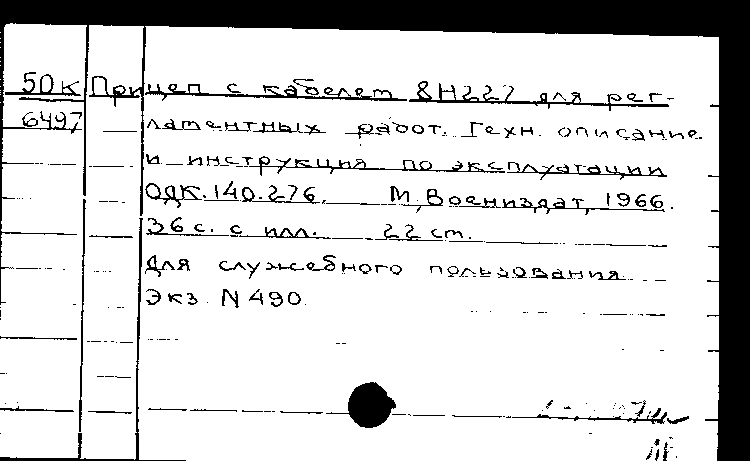 50к Прицеп с кабелем 8Н227 для рег-
6497 ламентных работ. Техн. описание
и инструкция по эксплуатации
ОДК.140.276. М, Воениздат, 1966.
36 с. с илл. 22 см.
Для служебного пользования
Экз. N 490.